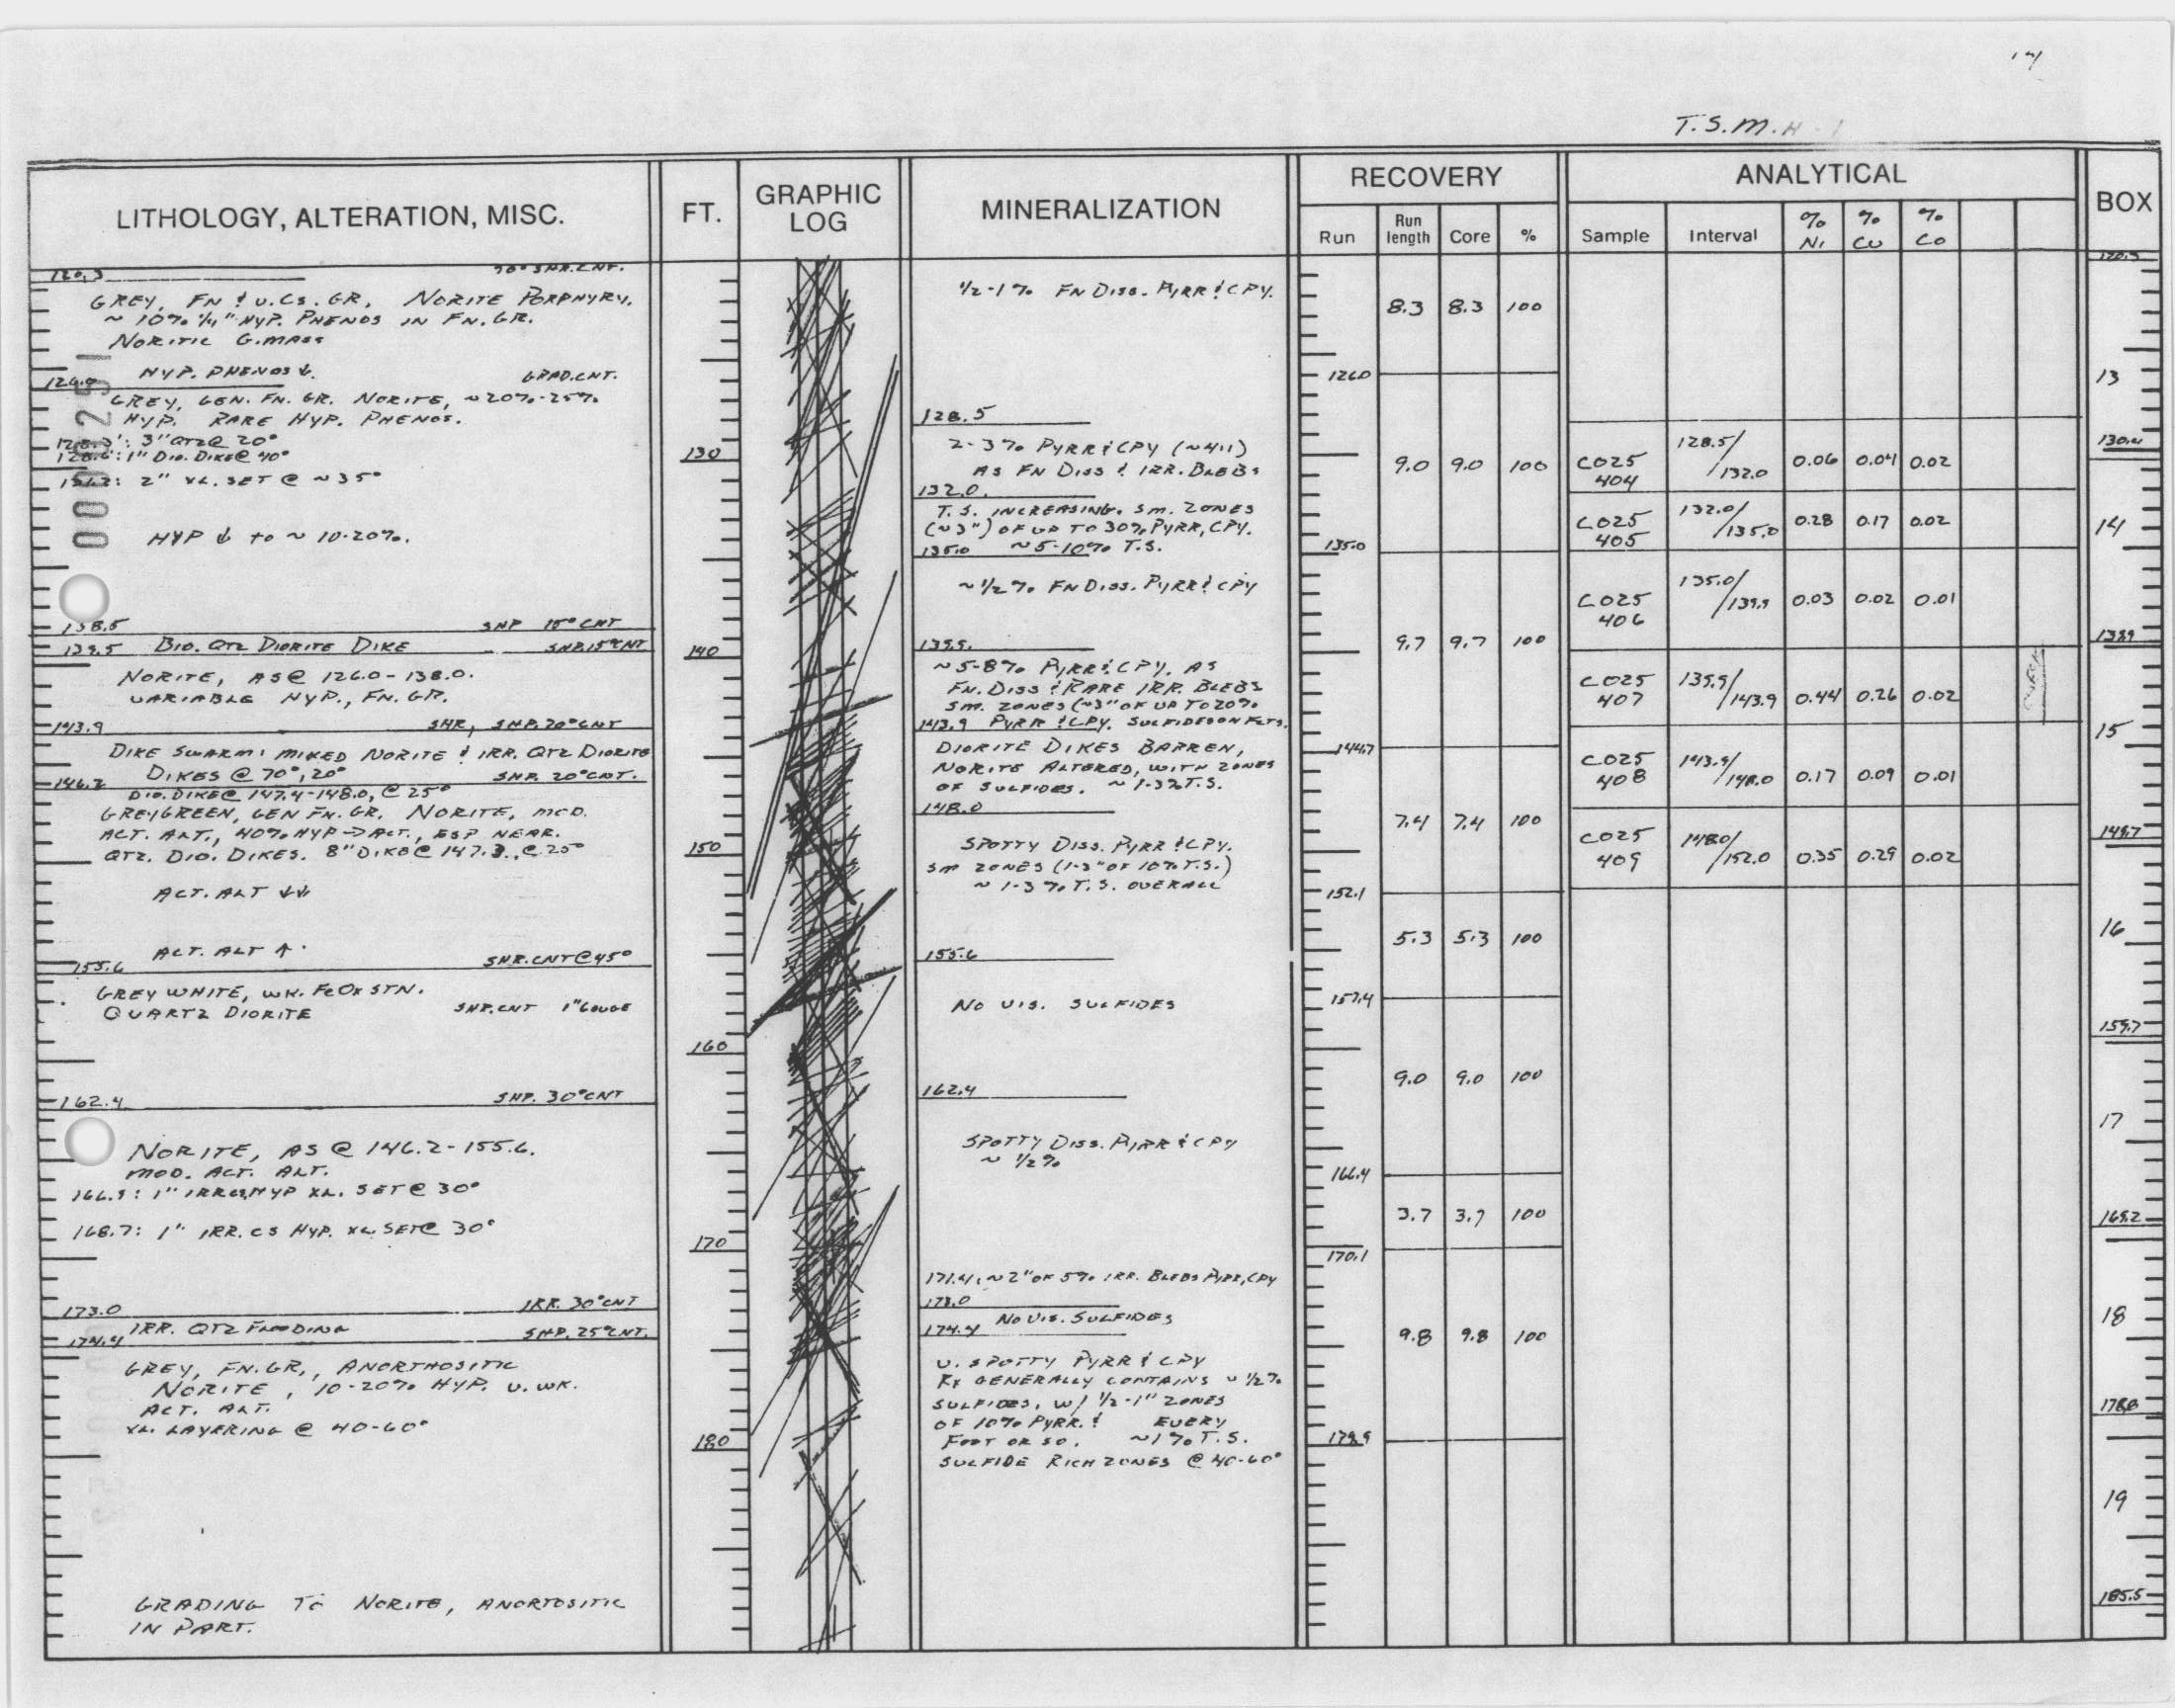 T.S.M.H-1
LITHOLOGY, ALTERATION, MISC.
FT.
GRAPHIC
LOG
MINERALIZATION
RECOVERY
Run
Run
length
Core
%
ANALYTICAL
Sample
Interval
%
Ni
%
Cu
%
Co
BOX
120.3 90° SHR.CNT.
GREY, FN & V.CS.GR, NORITE PORPHYRY.
~ 10% 1/4" HYP. PHENOS IN FN.GR.
NORITIC G.MASS
HYP. PHENOS ↓.
126.0 GRAD.CNT.
GREY, GEN. FN. GR. NORITE, ~20%-25%
HYP. RARE HYP. PHENOS.
: 3" QTZ @ 20°
: 1" DIO. DIKE @ 40°
: 2" XL. SET @ ~35°
HYP ↓ to ~ 10-20%.
000251
138.5 SHP 15° CNT
139.5 BIO. QTZ DIORITE DIKE SHP.15° CNT
NORITE, AS @ 126.0-138.0.
VARIABLE HYP., FN.GR.
143.9 SHR, SHP.20° CNT
DIKE SWARM: MIXED NORITE & IRR. QTZ DIORITE
DIKES @ 70°, 20°
146.2 SHP. 20° CNT.
DIO. DIKE @ 147.4-148.0, @ 25°
GREYGREEN, GEN FN. GR. NORITE, MOD.
ACT. ALT., 40% HYP → ACT., ESP NEAR.
QTZ. DIO. DIKES. 8" DIKE @ 147.3, @ 25°
ACT. ALT ↓↓
ACT. ALT ↑.
155.6 SHR.CNT @ 45°
GREY WHITE, WK. FeOx STN.
QUARTZ DIORITE SHP.CNT 1" GOUGE
162.4 SHP. 30° CNT
NORITE, AS @ 146.2-155.6.
MOD. ACT. ALT.
166.9: 1" IRR CS, HYP XL. SET @ 30°
168.7: 1" IRR. CS HYP. XL SET @ 30°
173.0 IRR. 30° CNT
IRR. QTZ FLOODING
174.4 SHP. 25° CNT.
GREY, FN.GR., ANORTHOSITIC
NORITE, 10-20% HYP. V. WK.
ACT. ALT.
XL. LAYERING @ 40-60°
GRADING TO NORITE, ANORTOSITIC
IN PART.
130
140
150
160
170
180
1/2-1% FN DISS. PYRR & CPY.
128.5
2-3% PYRR & CPY (~4:1)
AS FN DISS & IRR. BLEBS
132.0.
T.S. INCREASING. SM. ZONES
(~3") OF UP TO 30% PYRR, CPY.
135.0 ~5-10% T.S.
~1/2% FN DISS. PYRR & CPY
139.9.
~5-8% PYRR & CPY. AS
FN. DISS & RARE IRR. BLEBS
SM. ZONES (~3" OF UP TO 20%
143.9 PYRR & CPY. SULFIDES ON FLTS.
DIORITE DIKES BARREN,
NORITE ALTERED, WITH ZONES
OF SULFIDES. ~1-3% T.S.
148.0
SPOTTY DISS. PYRR & CPY.
SM ZONES (1-3" OF 10% T.S.)
~ 1-3% T.S. OVERALL
155.6
NO VIS. SULFIDES
162.4
SPOTTY DISS. PYRR & CPY
~ 1/2%
171.4: ~2" OF 5% IRR. BLEBS PYRR, CPY
173.0
NO VIS. SULFIDES
174.4
V. SPOTTY PYRR & CPY
RX GENERALLY CONTAINS ~ 1/2%
SULFIDES, W/ 1/2-1" ZONES
OF 10% PYRR. & EVERY
FOOT OR SO. ~1% T.S.
SULFIDE RICH ZONES @ 40-60°
8.3 8.3 100
126.0
9.0 9.0 100
135.0
9.7 9.7 100
144.7
7.4 7.4 100
152.1
5.3 5.3 100
157.4
9.0 9.0 100
166.4
3.7 3.7 100
170.1
9.8 9.8 100
179.9
C025 404 128.5/132.0 0.06 0.04 0.02
C025 405 132.0/135.0 0.28 0.17 0.02
C025 406 135.0/139.9 0.03 0.02 0.01
C025 407 139.9/143.9 0.44 0.26 0.02
C025 408 143.9/148.0 0.17 0.09 0.01
C025 409 148.0/152.0 0.35 0.29 0.02
120.3
13
130.4
14
139.9
15
149.7
16
159.7
17
169.2
18
178.8
19
185.5